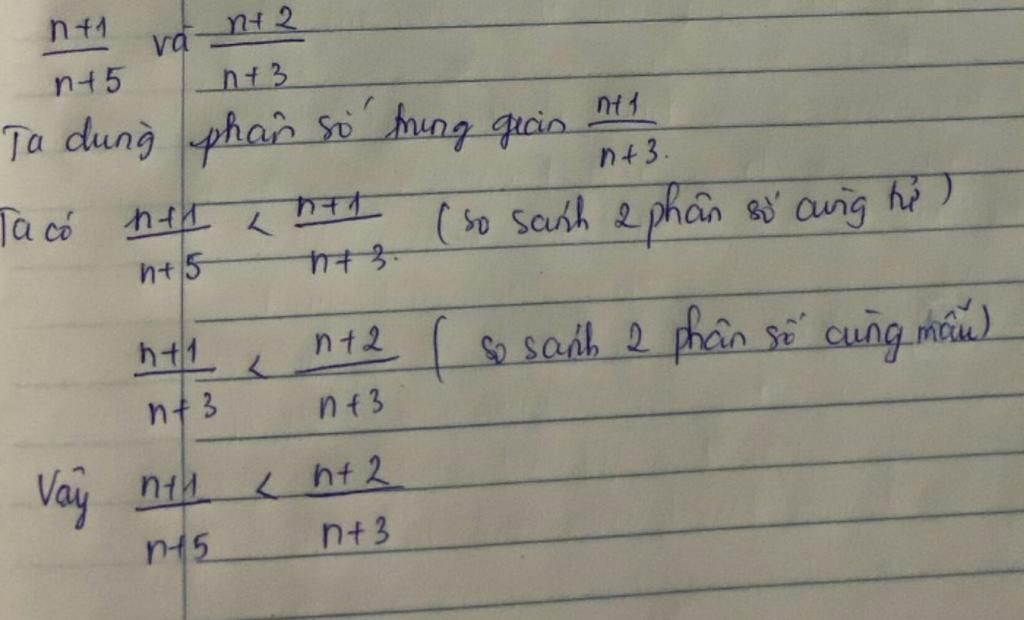 n+1/n+5 và n+2/n+3
Ta dùng phân số trung gian n+1/n+3.
Ta có n+1/n+5 < n+1/n+3. (so sánh 2 phân số cùng tử)
n+1/n+3 < n+2/n+3 (so sánh 2 phân số cùng mẫu)
Vậy n+1/n+5 < n+2/n+3